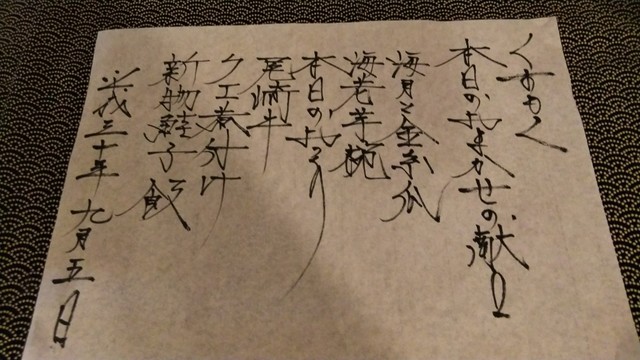 くすもく
本日のおまかせの献立
海月と金糸瓜
海老芋椀
本日のお造り
尾崎牛
クエ煮付け
新物鮭子飯
平成三十年九月五日